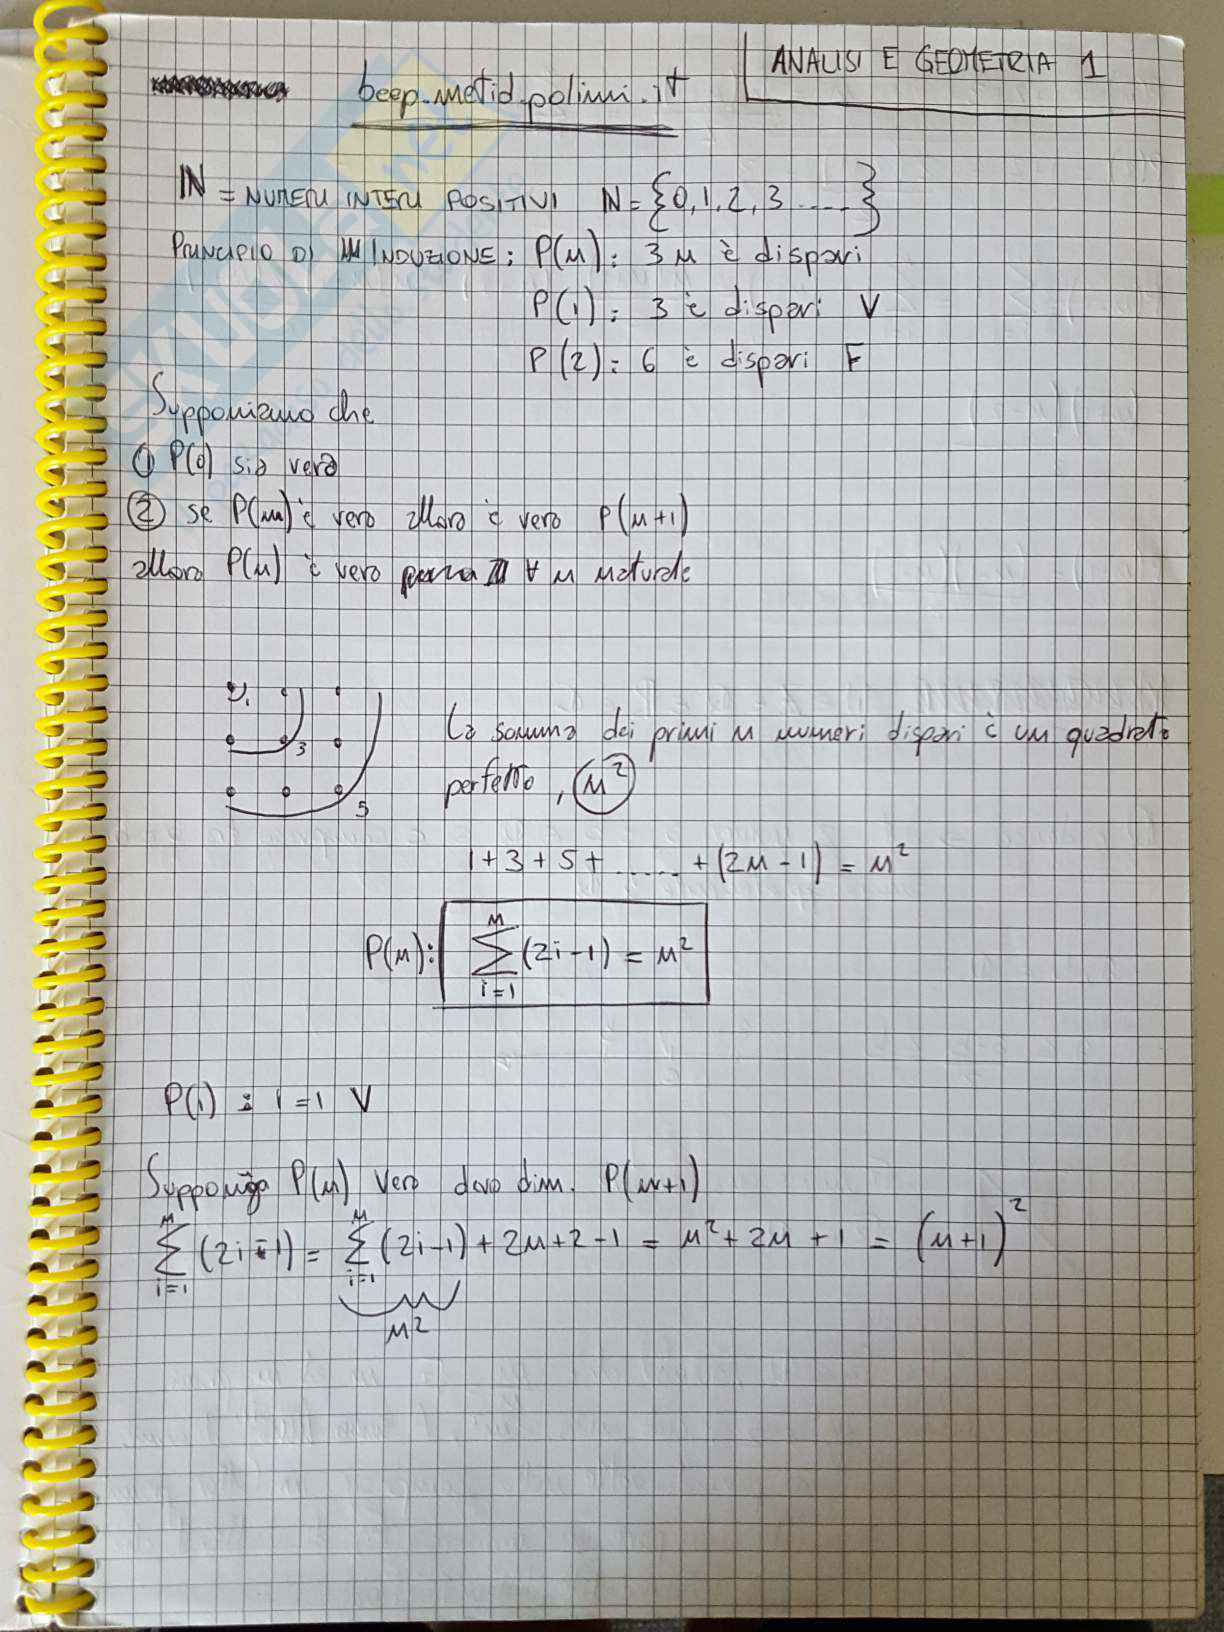 ANALISI E GEOMETRIA 1
beep.metid.polimi.it
ℕ = NUMERI INTERI POSITIVI ℕ = {0, 1, 2, 3 ....}
PRINCIPIO DI INDUZIONE : P(n) : 3n è dispari
P(1) : 3 è dispari V
P(2) : 6 è dispari F
Supponiamo che
① P(0) sia vera
② se P(n) è vero allora è vero P(n+1)
allora P(n) è vero ∀ n naturale
1
3
5
La somma dei primi n numeri dispari è un quadrato
perfetto, n²
1 + 3 + 5 + ...... + (2n - 1) = n²
P(n): ∑_{i=1}^{n} (2i - 1) = n²
P(1) : 1 = 1 V
Supponiamo P(n) vero devo dim. P(n+1)
∑_{i=1}^{n} (2i - 1) = ∑_{i=1}^{n} (2i - 1) + 2n + 2 - 1 = n² + 2n + 1 = (n+1)²
n²